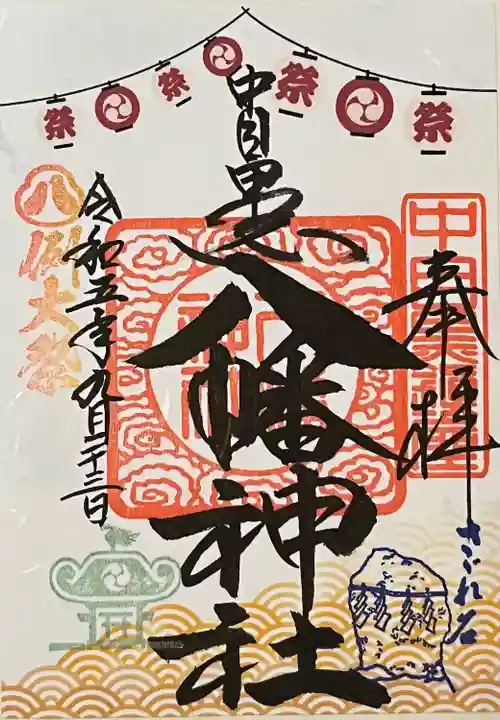 奉拝
中目黒
八幡神社
令和五年九月二十三日
八
例大祭
さざれ石
祭
祭
祭
祭